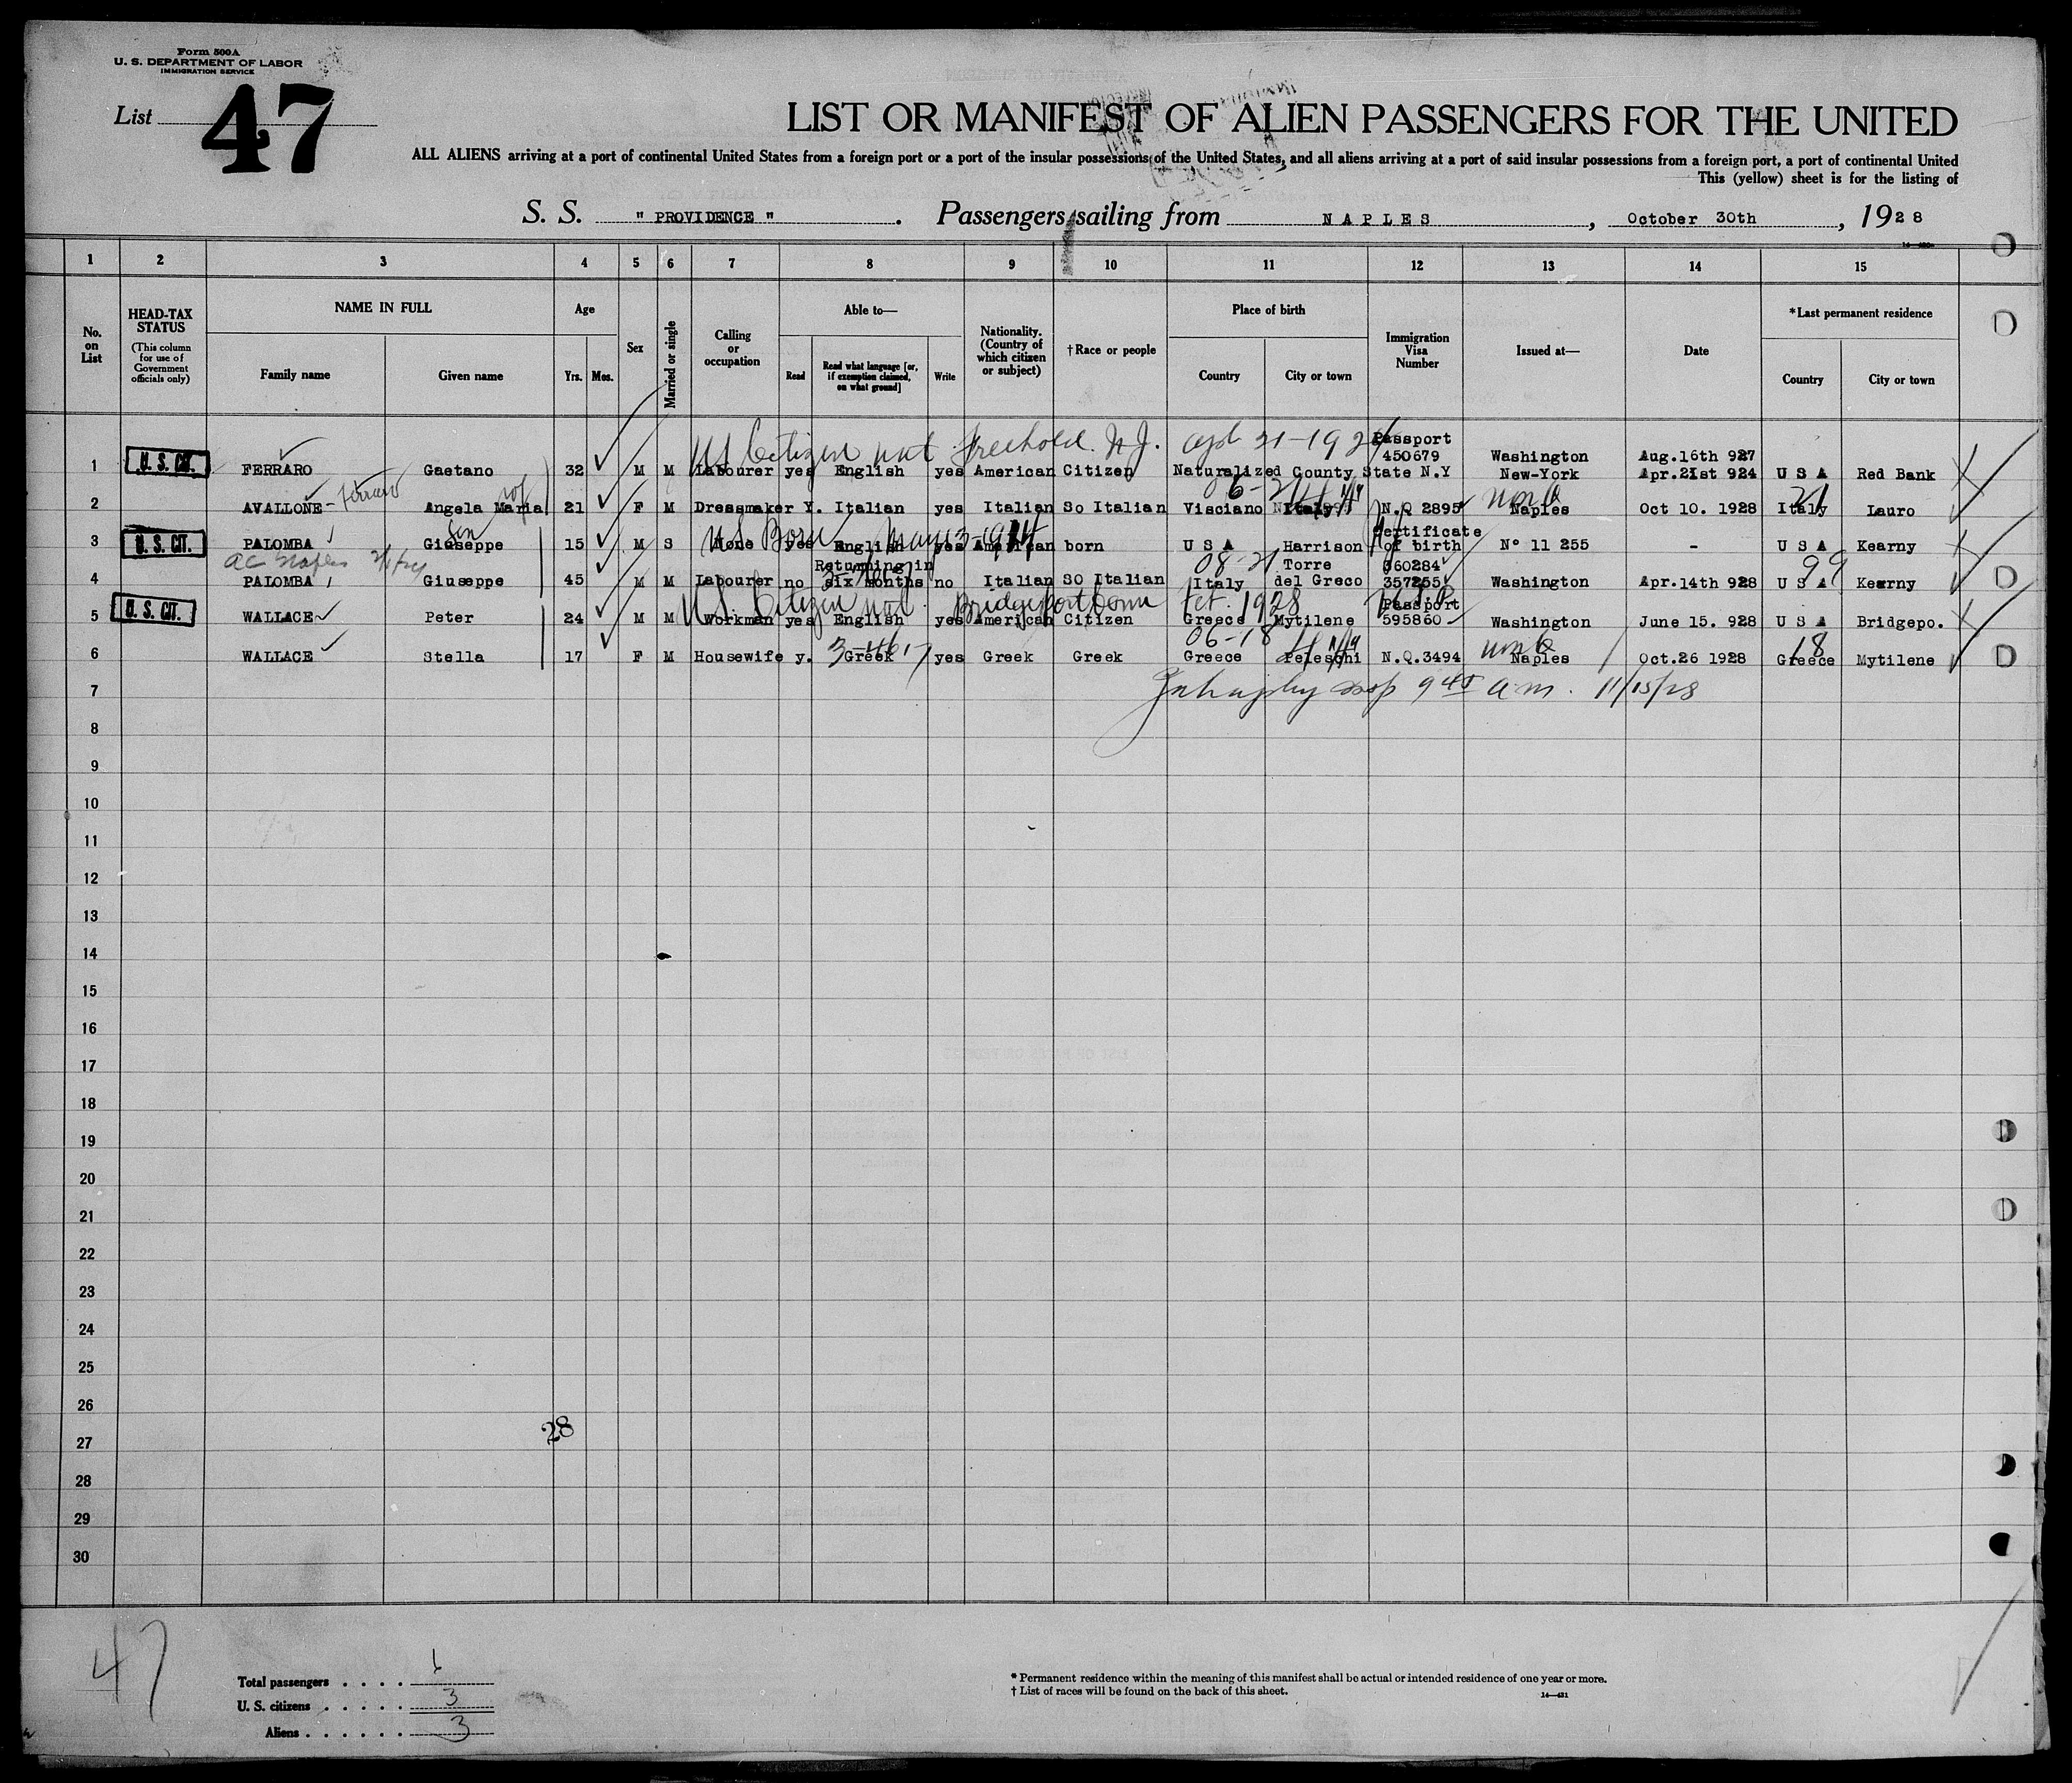 Form 500A
U. S. DEPARTMENT OF LABOR
IMMIGRATION SERVICE
List 47
LIST OR MANIFEST OF ALIEN PASSENGERS FOR THE UNITED
ALL ALIENS arriving at a port of continental United States from a foreign port or a port of the insular possessions of the United States, and all aliens arriving at a port of said insular possessions from a foreign port, a port of continental United
This (yellow) sheet is for the listing of
S. S. " PROVIDENCE " . Passengers sailing from NAPLES , October 30th , 1928
1 2 3 4 5 6 7 8 9 10 11 12 13 14 15
No. on List
HEAD-TAX STATUS (This column for use of Government officials only)
NAME IN FULL
Family name Given name
Age
Yrs. Mos.
Sex
Married or single
Calling or occupation
Able to—
Read Read what language [or, if exemption claimed, on what ground] Write
Nationality. (Country of which citizen or subject)
†Race or people
Place of birth
Country City or town
Immigration Visa Number
Issued at—
Date
*Last permanent residence
Country City or town
US Citizen nat Freehold N.J. Apl 21-1924 Passport
450679 Washington Aug.16th 927
1 U. S. CIT. FERRARO Gaetano 32 M M Labourer yes English yes American Citizen Naturalized County State N.Y New-York Apr.21st 924 U S A Red Bank
2 AVALLONE - Ferraro Angela Maria 21 F M Dressmaker Y. Italian yes Italian So Italian Visciano Italy N.Q 2895 Naples Oct 10. 1928 Italy 21 Lauro
son U.S. Born Certificate
3 U. S. CIT. PALOMBA Giuseppe 15 M S None yes English yes American born U S A Harrison of birth N° 11 255 - U S A Kearny
Returning in 08-21 Torre 360284 99
4 PALOMBA Giuseppe 45 M M Labourer no six months no Italian SO Italian Italy del Greco 357255 Washington Apr.14th 928 U S A Kearny
U.S. Citizen nat. Bridgeport Conn Oct. 1928 Passport
5 U. S. CIT. WALLACE Peter 24 M M Workman yes English yes American Citizen Greece Mytilene 595860 Washington June 15. 928 U S A Bridgepo.
06-18 18
6 WALLACE Stella 17 F M Housewife y. Greek yes Greek Greek Greece Peleschi N.Q.3494 Naples Oct.26 1928 Greece Mytilene
7 9 45 a.m. 11/15/28
8
9
10
11
12
13
14
15
16
17
18
19
20
21
22
23
24
25
26
28
27
28
29
30
47
Total passengers . . . . 6
U. S. citizens . . . . . 3
Aliens . . . . . . 3
* Permanent residence within the meaning of this manifest shall be actual or intended residence of one year or more.
† List of races will be found on the back of this sheet.
14—421